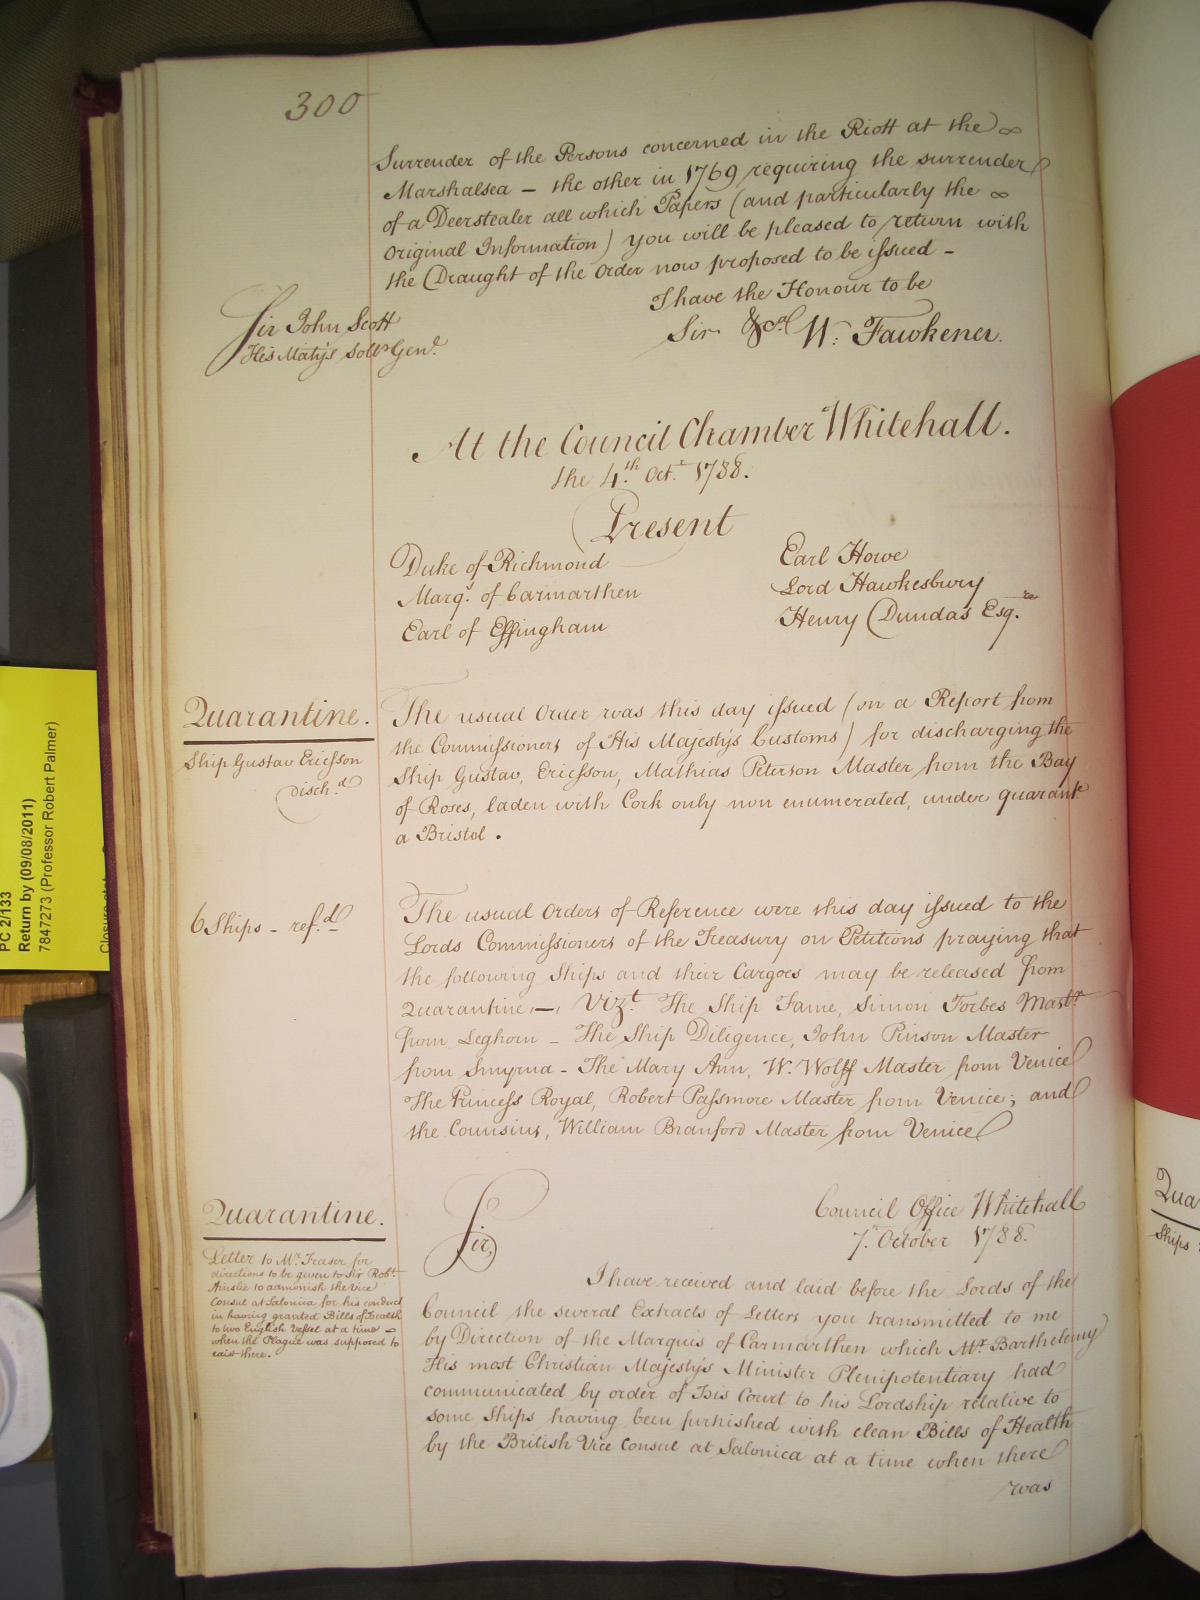 300
Surrender of the Persons concerned in the Riott at the
Marshalsea — the other in 1769 requiring the surrender
of a Deerstealer all which Papers (and particularly the
Original Information) you will be pleased to return with
the Draught of the Order now proposed to be issued —
I have the Honour to be
Sir &ca W: Fawkener.
Sir John Scott
His Matys Sollr Genl.
At the Council Chamber Whitehall.
the 4th. Oct. 1788.
Present
Duke of Richmond
Marqs. of Carmarthen
Earl of Effingham
Earl Howe
Lord Hawkesbury
Henry Dundas Esqre.
Quarantine.
Ship Gustav Ericsson
disch.d
The usual Order was this day issued (on a Report from
the Commissioners of His Majestys Customs) for discharging the
Ship Gustav, Ericsson, Mathias Peterson Master from the Bay
of Roses, laden with Cork only non enumerated, under quarante.
a Bristol.
6 Ships - ref.d
The usual Orders of Reference were this day issued to the
Lords Commissioners of the Treasury on Petitions praying that
the following Ships and their Cargoes may be released from
Quarantine, —, Vizt. The Ship Fame, Simon Forbes Mastr.
from Leghorn — The Ship Diligence, John Pinson Master
from Smyrna - The Mary Ann, W. Wolff Master from Venice
The Princess Royal, Robert Passmore Master from Venice; and
the Counsins, William Branford Master from Venice
Quarantine.
Letter to Mr. Fraser for
directions to be given to Sir Robt.
Ainslie to admonish the Vice
Consul at Salonica for his conduct
in having granted Bills of Health
to two English Vessel at a time
when the Plague was supposed to
exist there.
Sir,
Council Office Whitehall
7. October 1788.
I have received and laid before the Lords of the
Council the several Extracts of Letters you transmitted to me
by Direction of the Marquis of Carmarthen which Mr. Barthelemy
His most Christian Majesty's Minister Plenipotentiary had
communicated by order of his Court to his Lordship relative to
some Ships having been furnished with clean Bills of Health
by the British Vice Consul at Salonica at a time when there
was
PC 2/133
Return by (09/08/2011)
7847273 (Professor Robert Palmer)
Qua
Ships